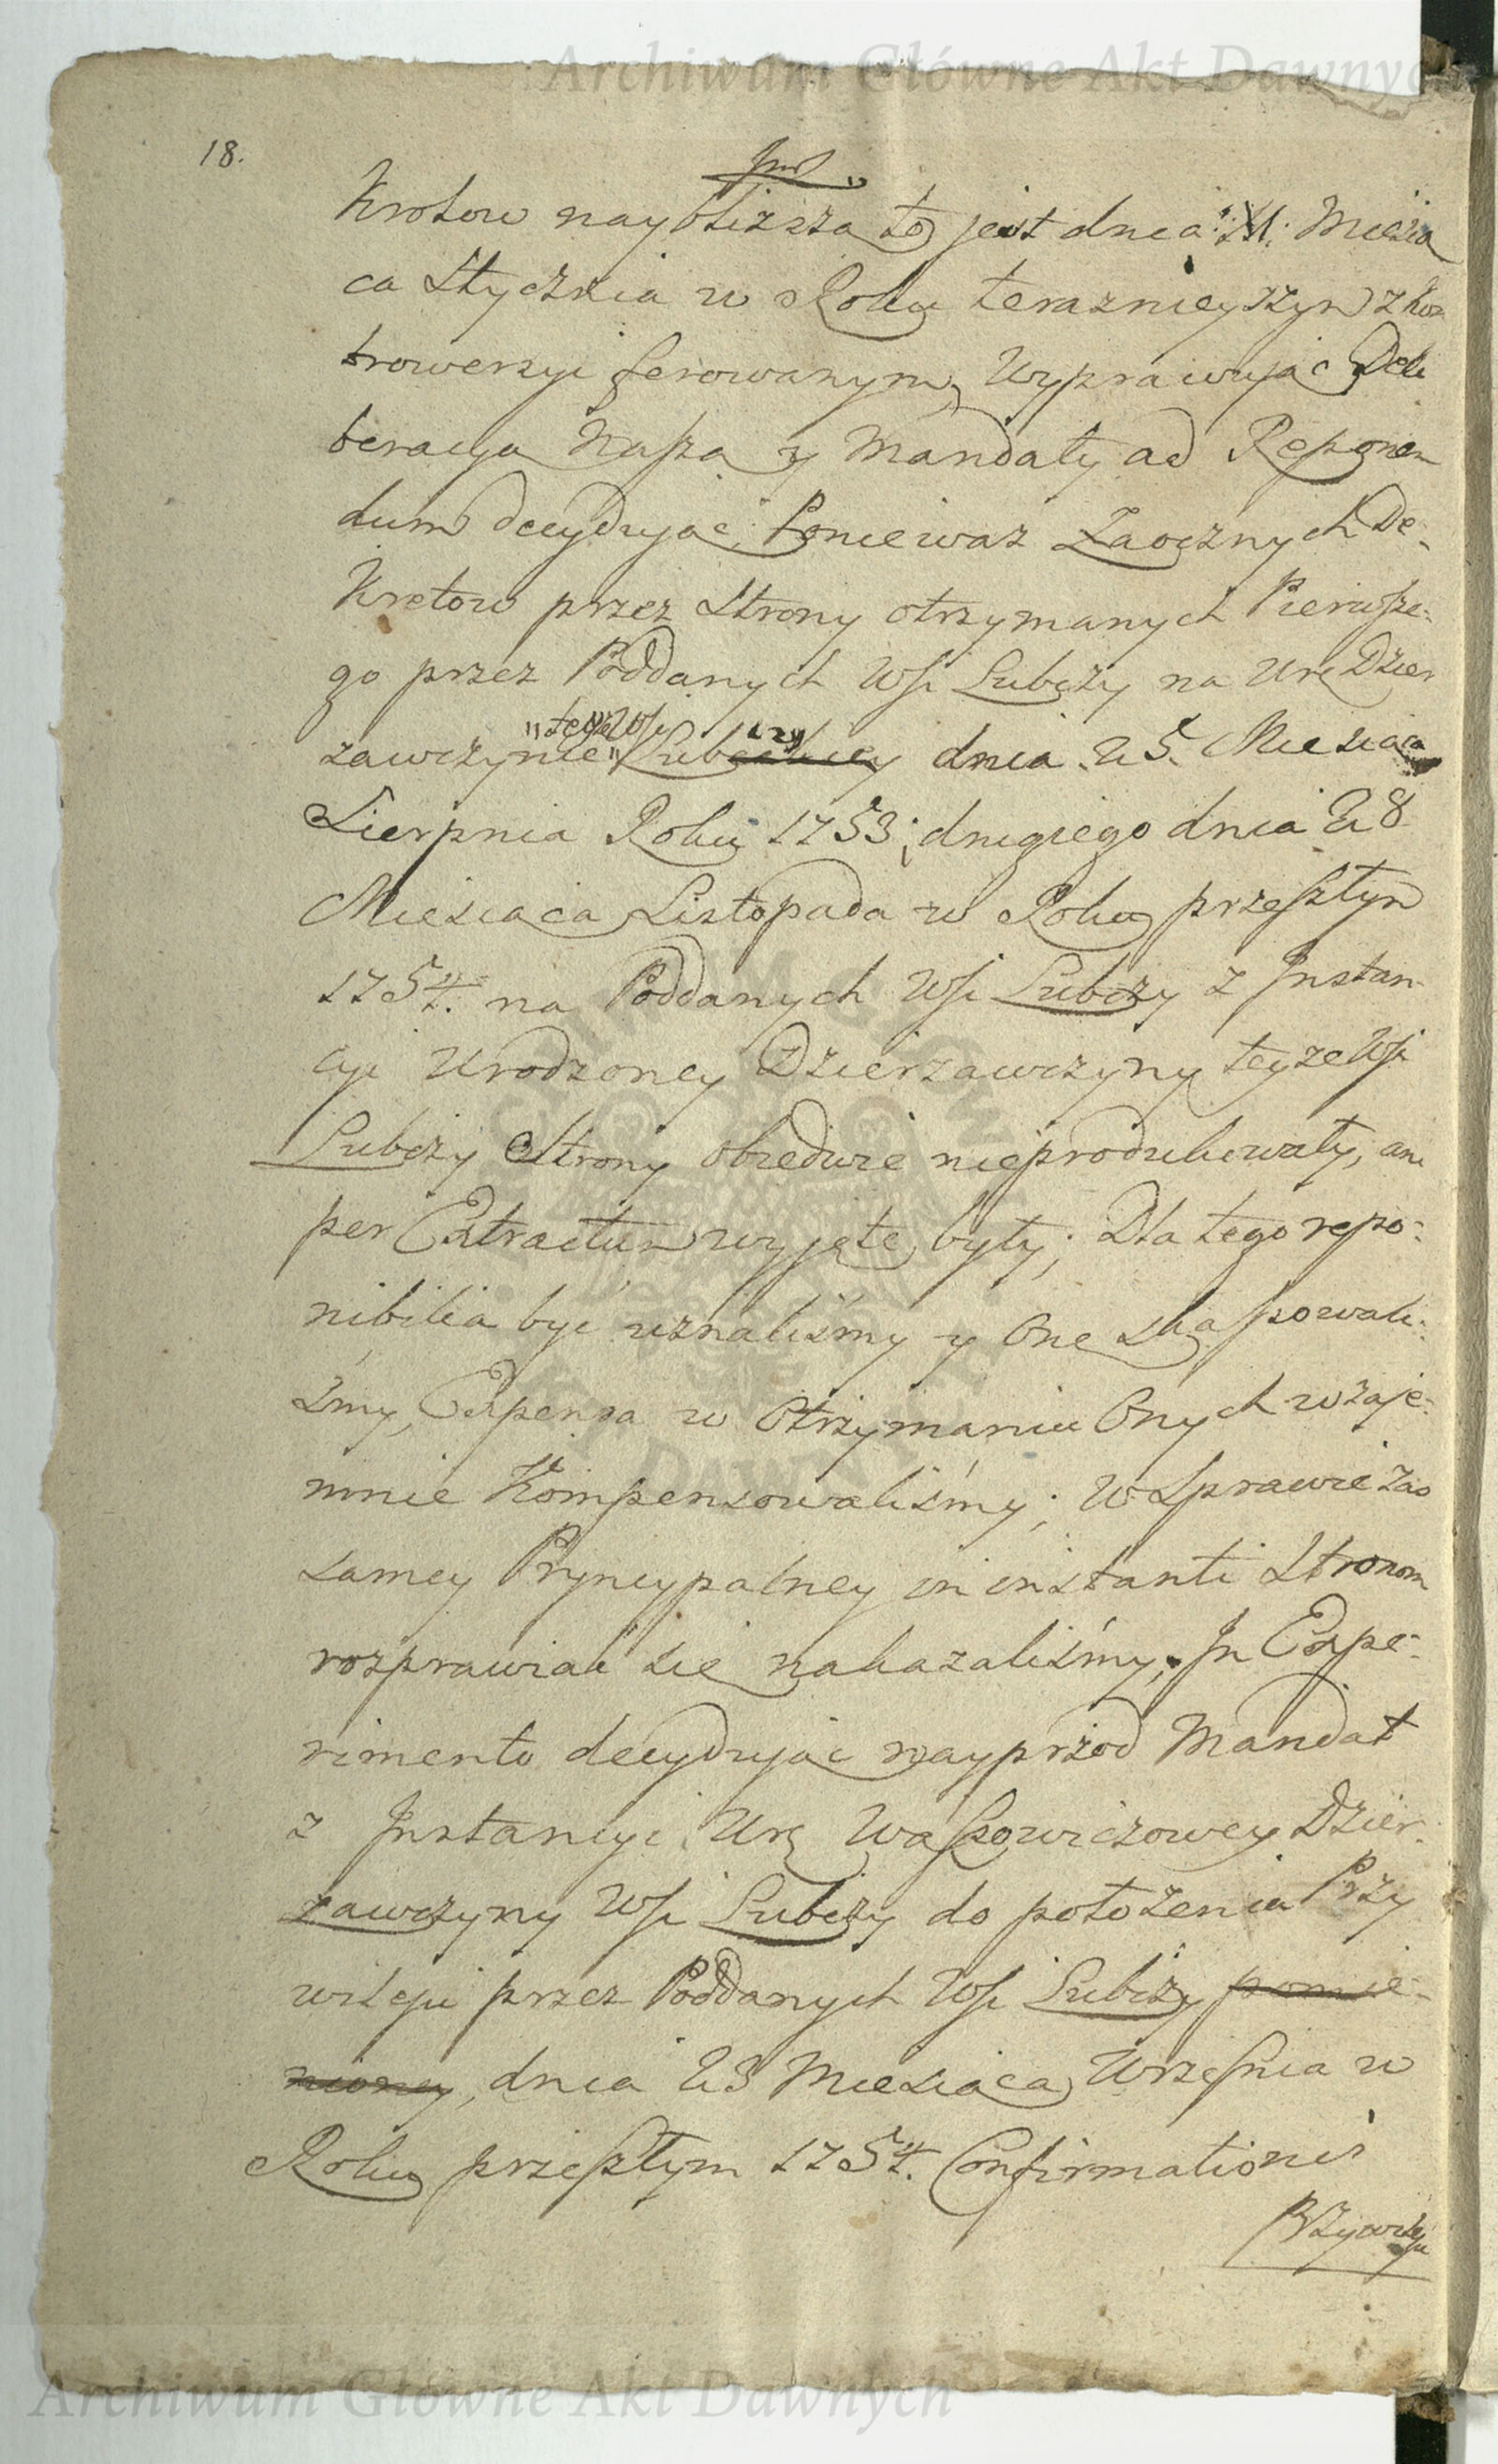 Archiwum Główne Akt Dawnych
18.
Kretow nayblizsza to jest dnia Miesia
ca Stycznia w Roku teraznieyszym z Kon
trowersyi ferowanym, Wyprawując Deli
beracya Nasza y Mandaty ad Reponen
dum decydując, Poniewaz Zaocznych De-
kretow przez Strony otrzymanych Pierwsze-
go przez Poddanych Wsi Lubczy na Ure Dzier
"teyze Wsi
zawczynie" Lubczy dnia 25. Miesiąca
Sierpnia Roku 1753; drugiego dnia 28
Miesiąca Listopada w Roku przeszłym
1754. na Poddanych Wsi Lubczy z Instan-
cyi Urodzoney Dzierzawczyny teyze Wsi
Lubczy Strony obiedwie nieprodukowały, ani
per Extractum wyjęte były; Dla tego repo-
nibilia być uznaliśmy y One skassowali-
śmy, Expensa w Otrzymaniu Onych wzaje-
mnie Kompensowaliśmy; W Sprawie zas
samey Pryncypalney in instanti Stronom
rozprawiać sie nakazaliśmy; In Expe-
rimento decydując nayprzod Mandat
z Instancyi Ur Wąssowiczowey Dzier-
zawczyny Wsi Lubczy do położenia Przy
wileju przez Poddanych Wsi Lubczy pomie-
nioney, dnia 23 Miesiąca Września w
Roku przeszłym 1754. Confirmationis
Przywileju
Archiwum Główne Akt Dawnych